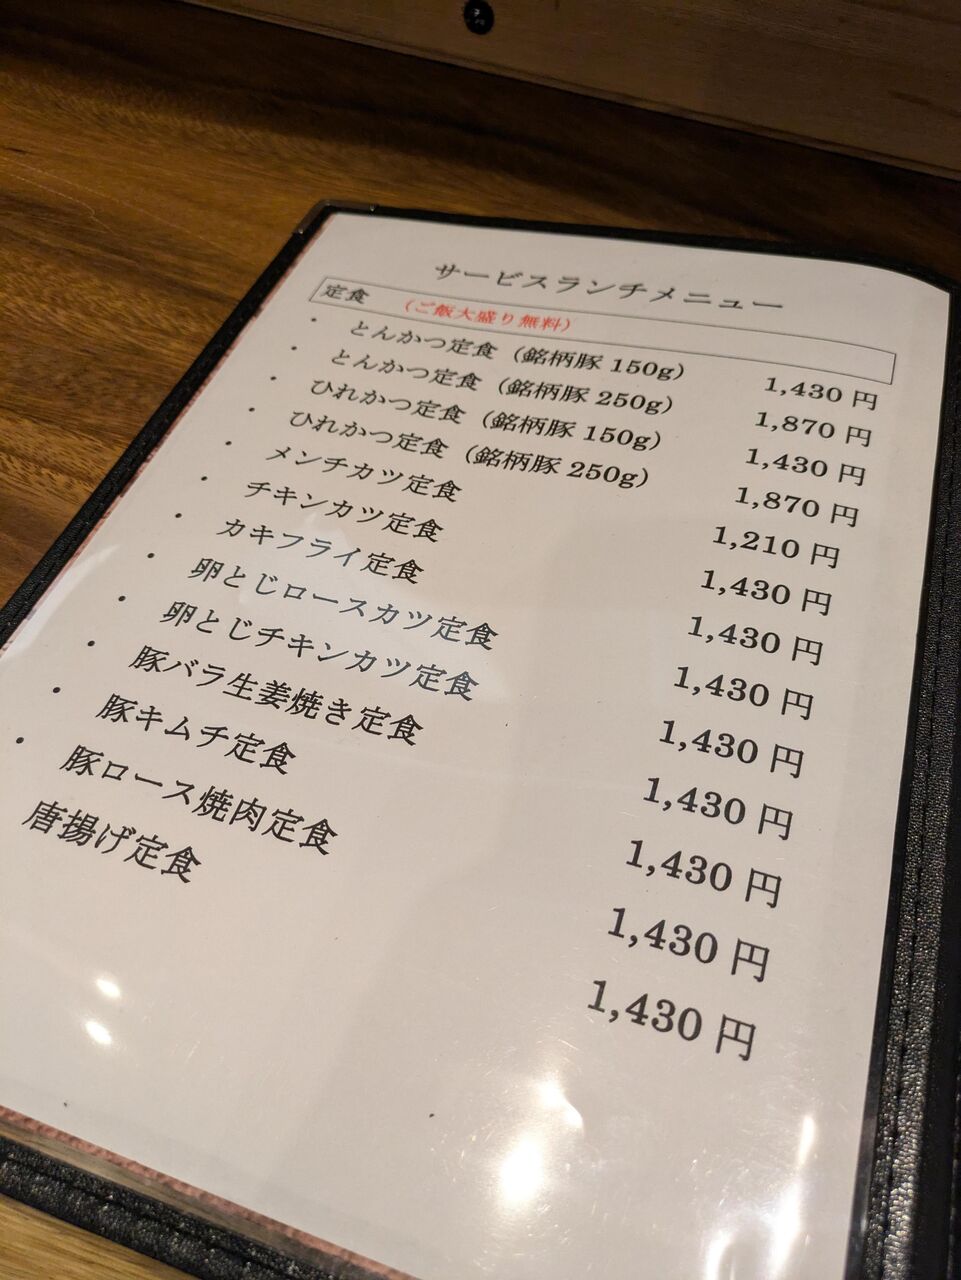 サービスランチメニュー
定食 (ご飯大盛り無料)
・ とんかつ定食 (銘柄豚 150g) 1,430 円
・ とんかつ定食 (銘柄豚 250g) 1,870 円
・ ひれかつ定食 (銘柄豚 150g) 1,430 円
・ ひれかつ定食 (銘柄豚 250g) 1,870 円
・ メンチカツ定食 1,210 円
・ チキンカツ定食 1,430 円
・ カキフライ定食 1,430 円
・ 卵とじロースカツ定食 1,430 円
・ 卵とじチキンカツ定食 1,430 円
・ 豚バラ生姜焼き定食 1,430 円
・ 豚キムチ定食 1,430 円
・ 豚ロース焼肉定食 1,430 円
唐揚げ定食 1,430 円